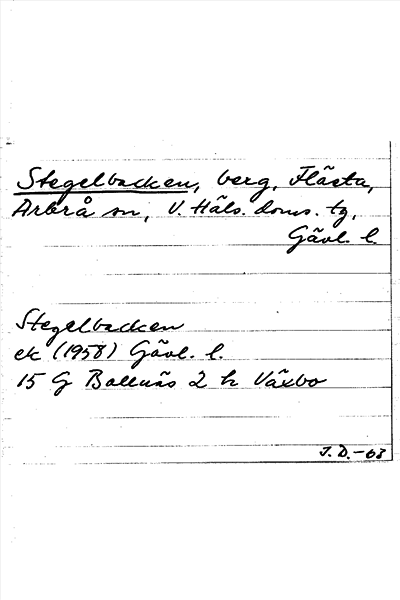 Stegelbacken, berg, Flästa,
Arbrå sn, V. Häls. doms. tg,
Gävl. l.
Stegelbacken
ek (1958) Gävl. l.
15 G Bollnäs 2 h Växbo
J.D.-63